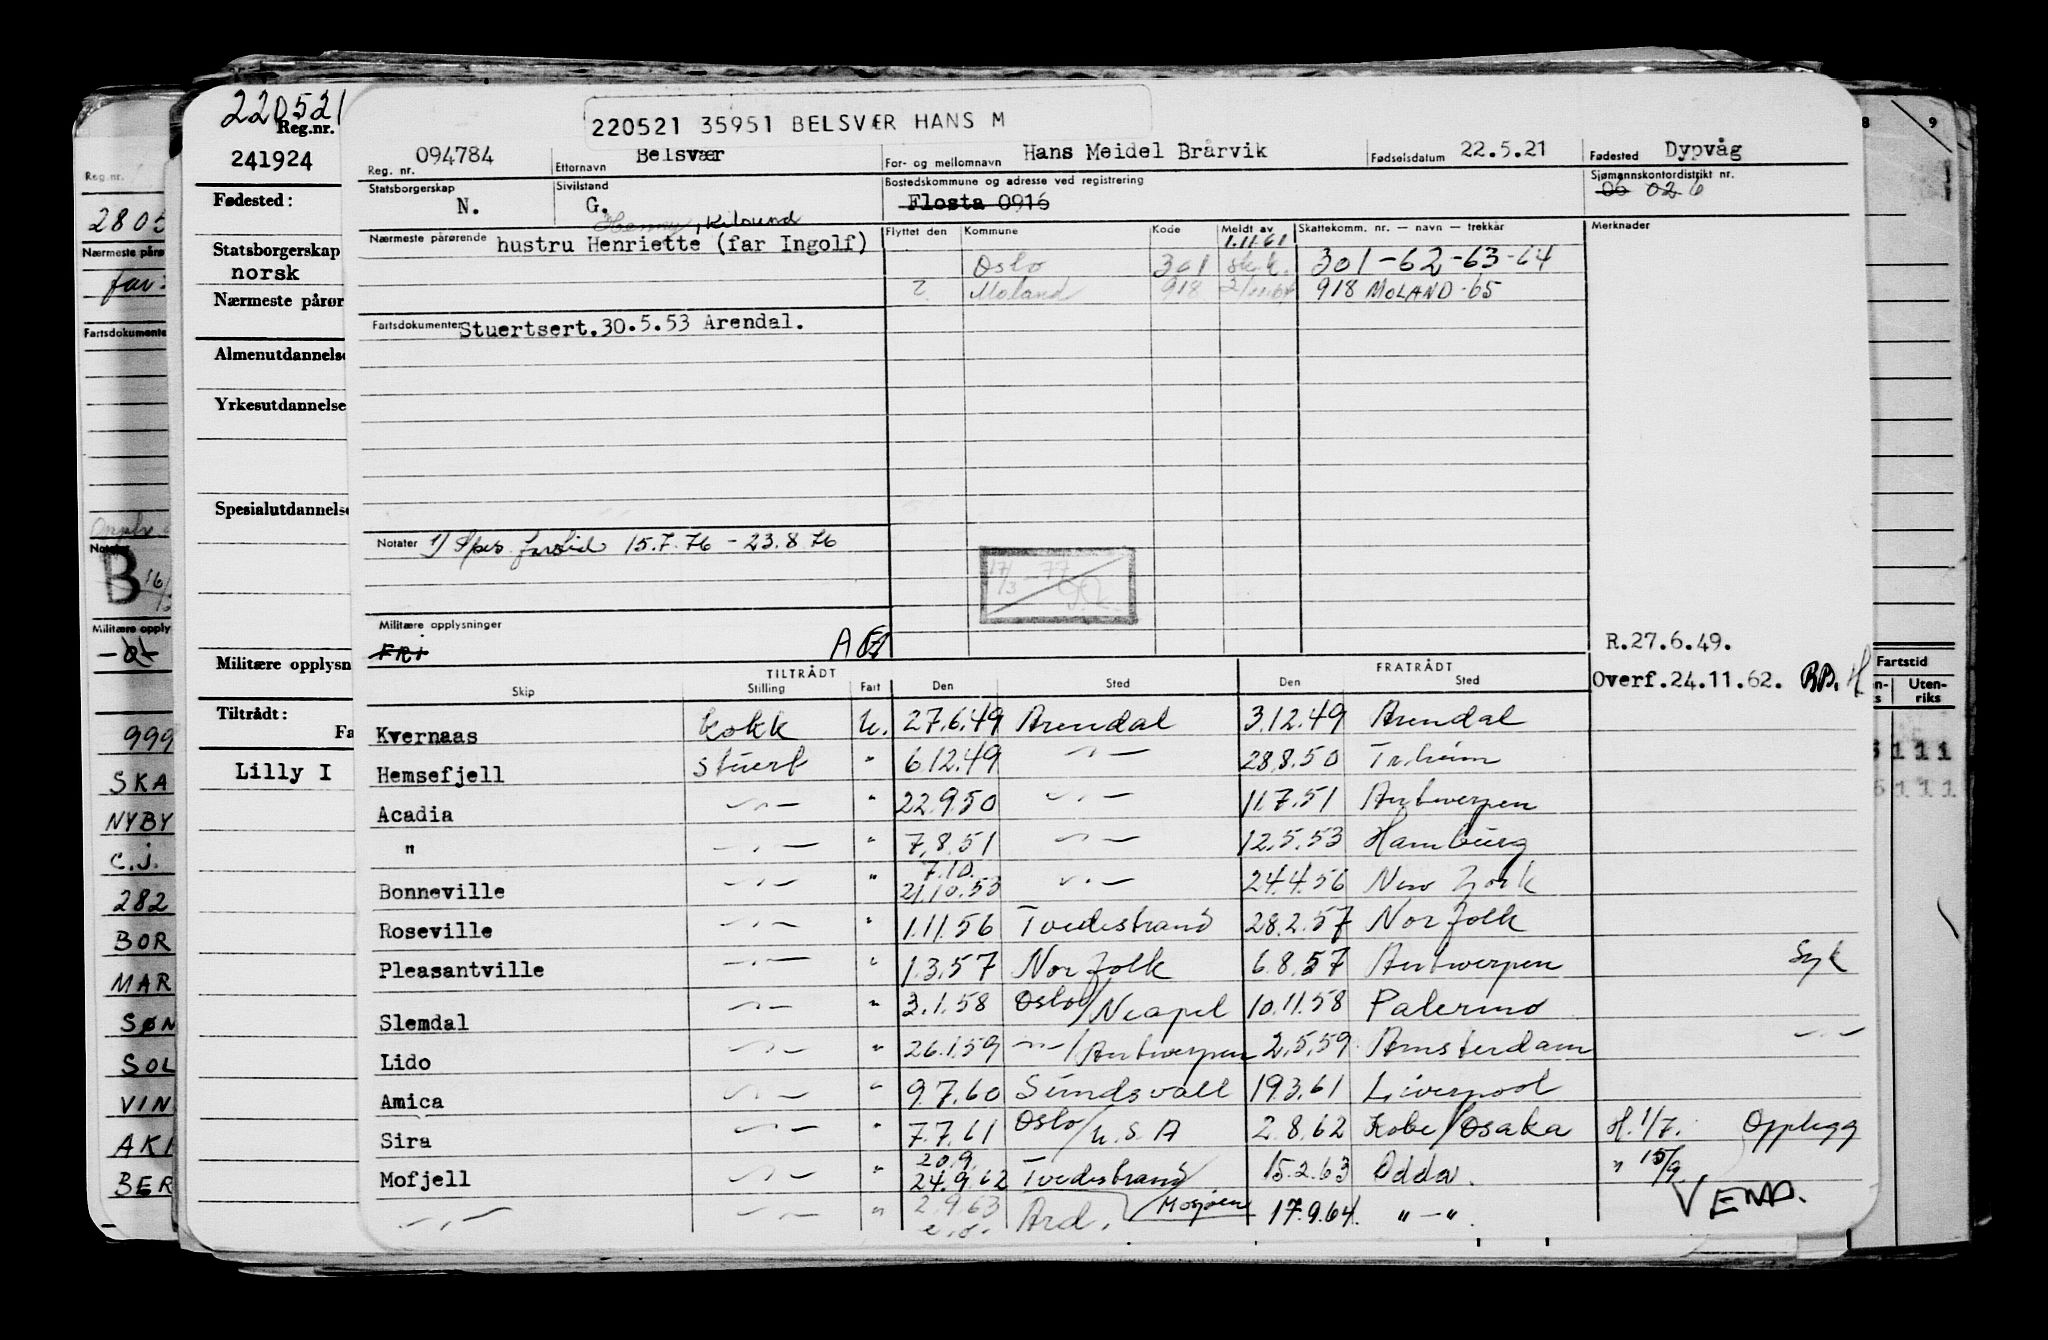 220521 35951 BELSVÆR HANS M
Reg. nr. 094784 Etternavn Belsvær For- og mellomnavn Hans Meidel Brårvik Fødselsdatum 22.5.21 Fødested Dypvåg
Statsborgerskap N. Sivilstand G. Bostedskommune og adresse ved registrering Flosta 0916 Sjømannskontordistrikt nr. 06 026
Henny, Kilsund
Nærmeste pårørende hustru Henriette (far Ingolf)
Flyttet den Kommune Kode Meldt av Skattekomm. nr. — navn — trekkår Merknader
1.11.61
Oslo 301 sk.k. 301-62-63-64
Moland 918 918 MOLAND-65
Fartsdokumenter Stuertsert.30.5.53 Arendal.
Notater 1) Spes. fartstid 15.7.76 - 23.8.76
17/3-77
Militære opplysninger
FRI
R.27.6.49.
Overf.24.11.62. BB. H
TILTRÅDT FRATRÅDT
Skip Stilling Fart Den Sted Den Sted
Kvernaas kokk U. 27.6.49 Arendal 3.12.49 Arendal
Hemsefjell Stuert " 6.12.49 —"— 28.8.50 Tr.heim
Acadia —"— " 22.9.50 —"— 11.7.51 Antwerpen
" —"— " 7.8.51 —"— 12.5.53 Hamburg
7.10.
Bonneville —"— " 21.10.53 —"— 24.4.56 New York
Roseville —"— " 1.11.56 Tvedestrand 28.2.57 Norfolk
Pleasantville —"— " 1.3.57 Norfolk 6.8.57 Antwerpen Syk
Slemdal —"— " 3.1.58 Oslo/Neapel 10.11.58 Palermo
Lido —"— " 26.1.59 —"—/Antwerpen 2.5.59 Amsterdam —"—
Amica —"— " 9.7.60 Sundsvall 19.3.61 Liverpool
Sira —"— " 7.7.61 Oslo/U.S.A 2.8.62 Kobe/Osaka H.1/7. Opplegg
20.9.
Mofjell —"— " 24.9.62 Tvedestrand 15.2.63 Odda. " 15/9.
—"— —"— " 2.9.63 Ard./Mosjøen 17.9.64. "—". VEND.
e.o.
220521
Reg.nr.
241924
Fødested:
Statsborgerskap
norsk
Nærmeste pårør
Almenutdannelse
Yrkesutdannelse
Spesialutdannelse
Militære opplysn
Tiltrådt:
Fa
Lilly I
Reg.nr.
2805
Nærmeste påre
far:
Fartsdokumente
Notater
B 16/
Militære opply
-0-
999
SKA
NYBY
C.J.
282
BOR
MAR
SØN
SOL
VIN
AKI
BER
8 9
Fartstid
n- Uten-
ks riks
5 111
5 111